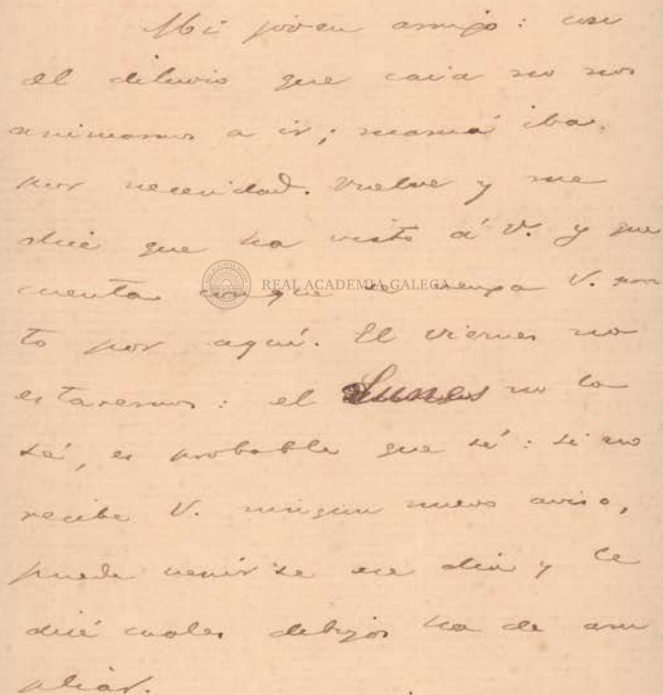 Mi jóven amigo: con
el diluvio que caia no nos
animamos a ir; mamá iba
por necesidad. Vuelve y me
dice que ha visto á V. y que
cuenta conque se venga V. pron
to por aquí. El viernes no
estaremos: el Lunes no lo
sé, es probable que sí: si no
recibe V. ningun nuevo aviso,
puede venirse ese dia y le
diré cuales dibujos ha de am
pliar.
REAL ACADEMIA GALEGA